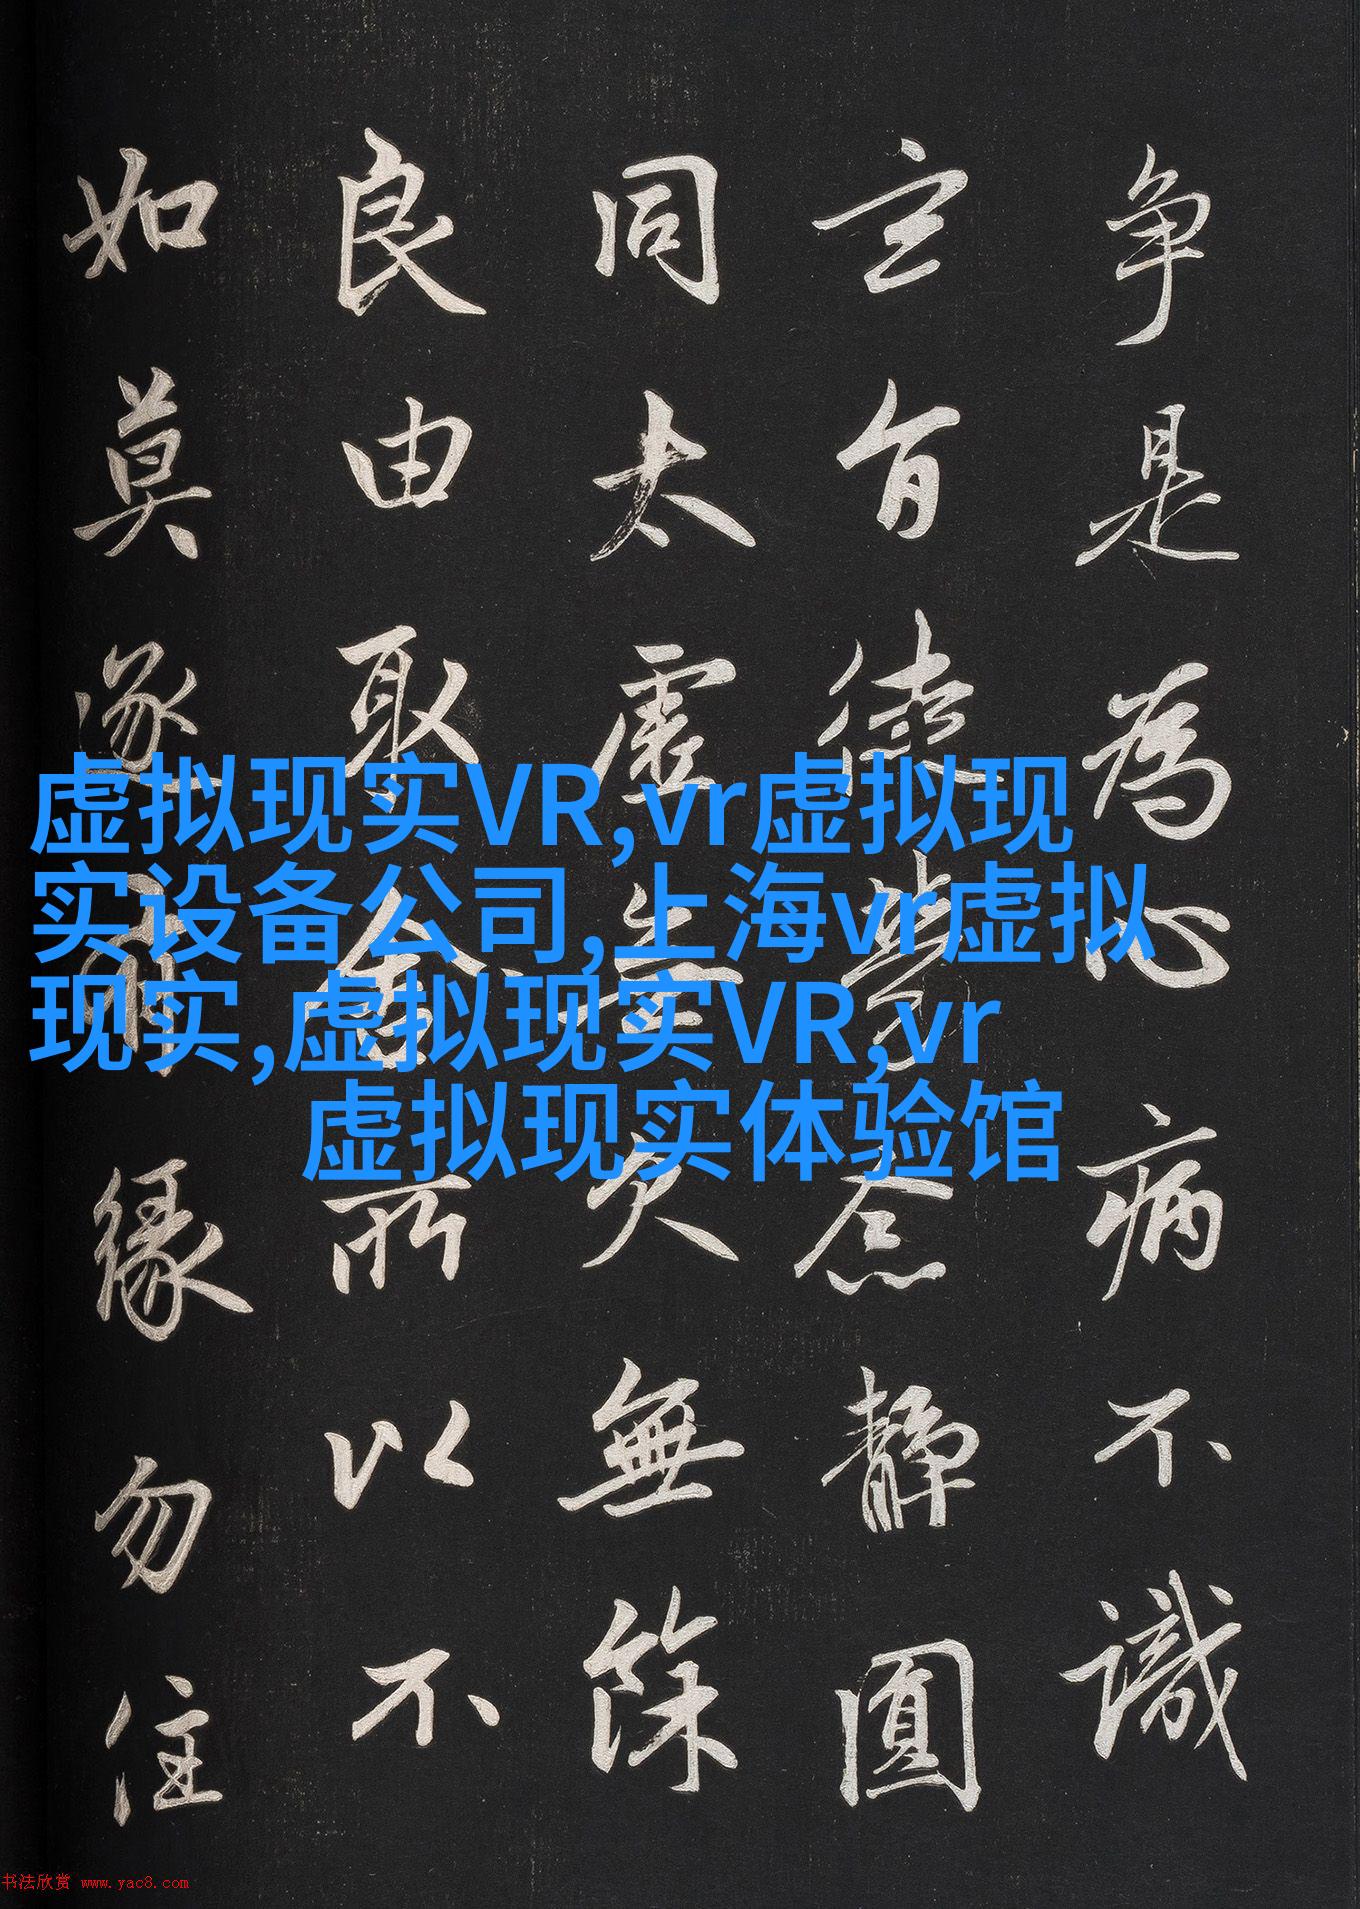 争是為心病不識
玄旨徒勞念静圓
同太虚無欠無餘
良由取舍所以不
如莫逐有縁勿住
虚拟现实VR,vr虚拟现
实设备公司,上海vr虚拟
现实,虚拟现实VR,vr
虚拟现实体验馆
书法欣赏 www.yac8.com